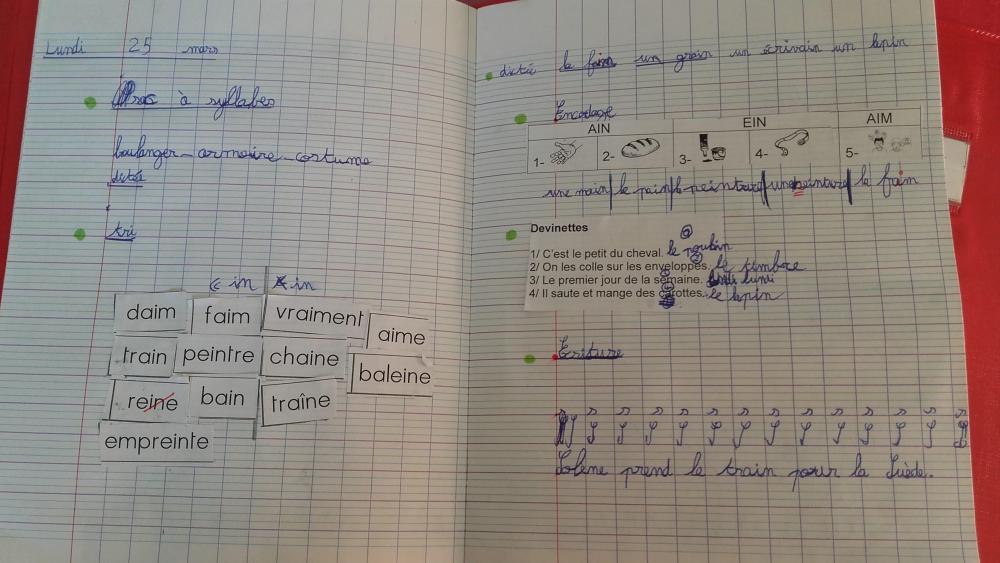 Lundi 25 mars
à syllabes
boulanger - armoire - costume
dictée
tri
in in
daim faim vraiment aime
train peintre chaine baleine
reine bain traîne
empreinte
dictée la faim un grain un écrivain un lapin
Encodage
AIN EIN AIM
1- 2- 3- 4- 5-
une main le pain la peinture une ceinture la faim
Devinettes
1/ C'est le petit du cheval. le poulain
2/ On les colle sur les enveloppes. le timbre
3/ Le premier jour de la semaine. lundi
4/ Il saute et mange des carottes. le lapin
Ecriture
Solène prend le train pour la Suède.